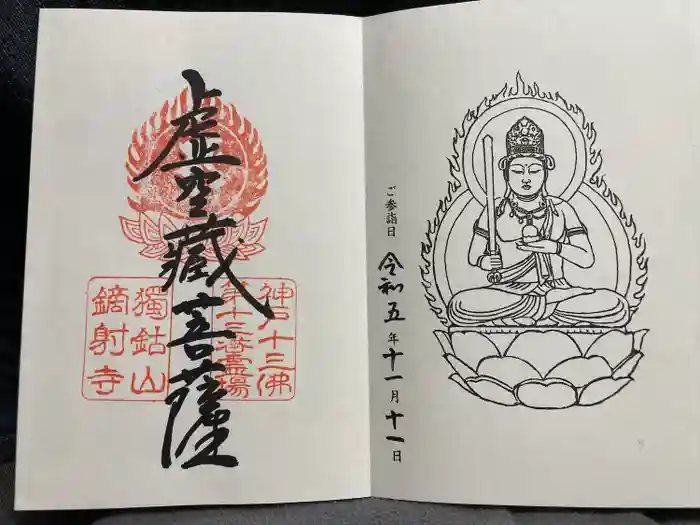 虚空藏菩薩
神戸十三佛
第十三番霊場
獨鈷山
鏑射寺
ご参詣日 令和五年十一月十一日